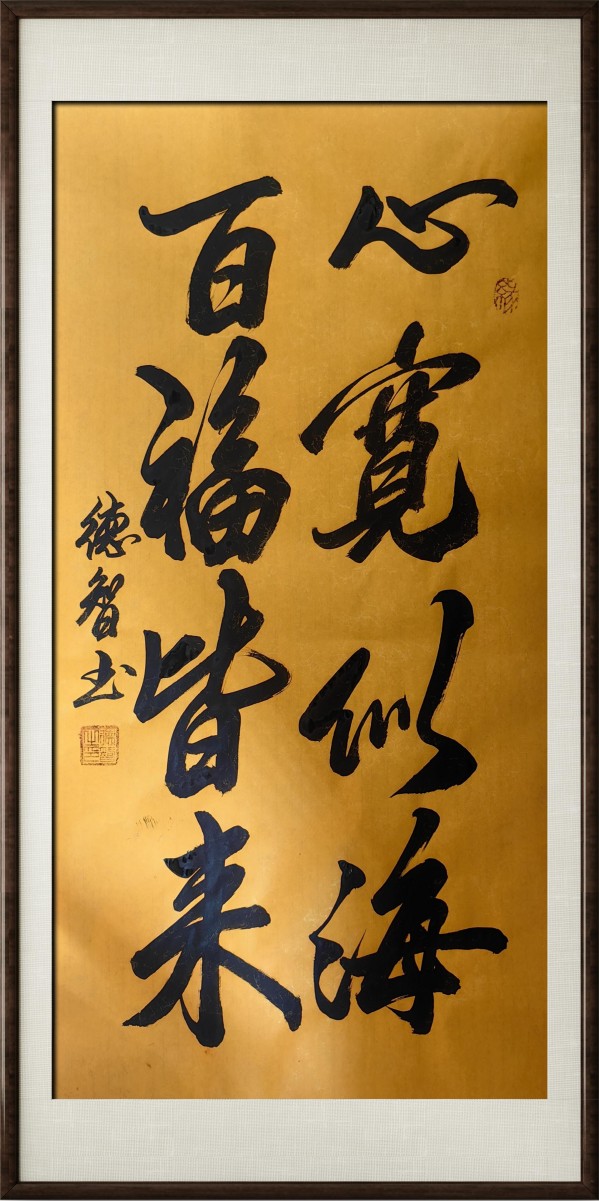 心寬似海
百福皆来
德智书